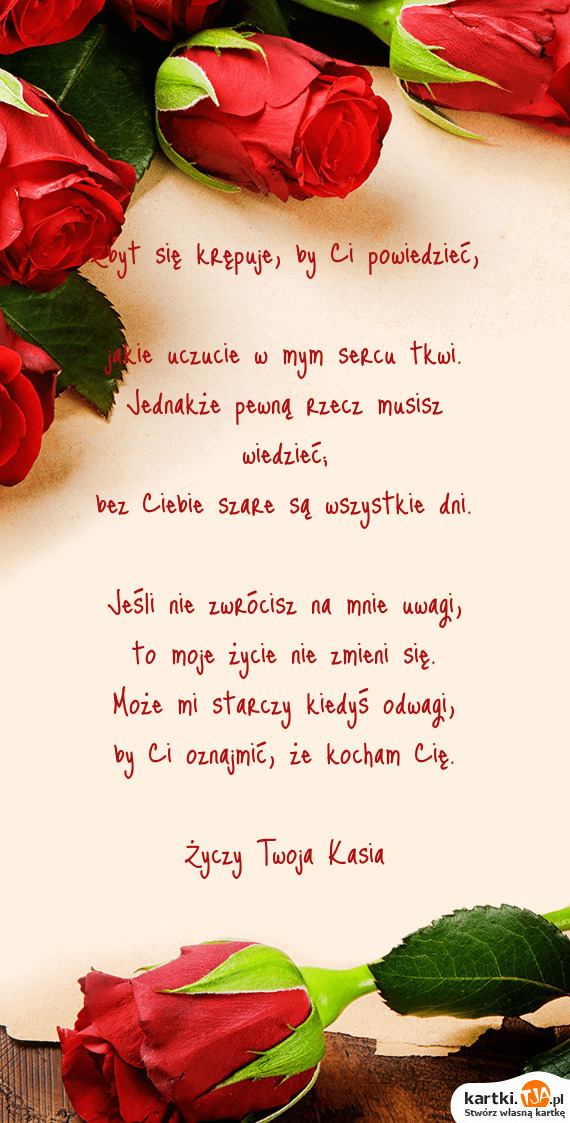 Zbyt się krępuje, by Ci powiedzieć,
jakie uczucie w mym sercu tkwi.
Jednakże pewną rzecz musisz
wiedzieć;
bez Ciebie szare są wszystkie dni.
Jeśli nie zwrócisz na mnie uwagi,
to moje życie nie zmieni się.
Może mi starczy kiedyś odwagi,
by Ci oznajmić, że kocham Cię.
Życzy Twoja Kasia
kartki.TJA.pl
Stwórz własną kartkę